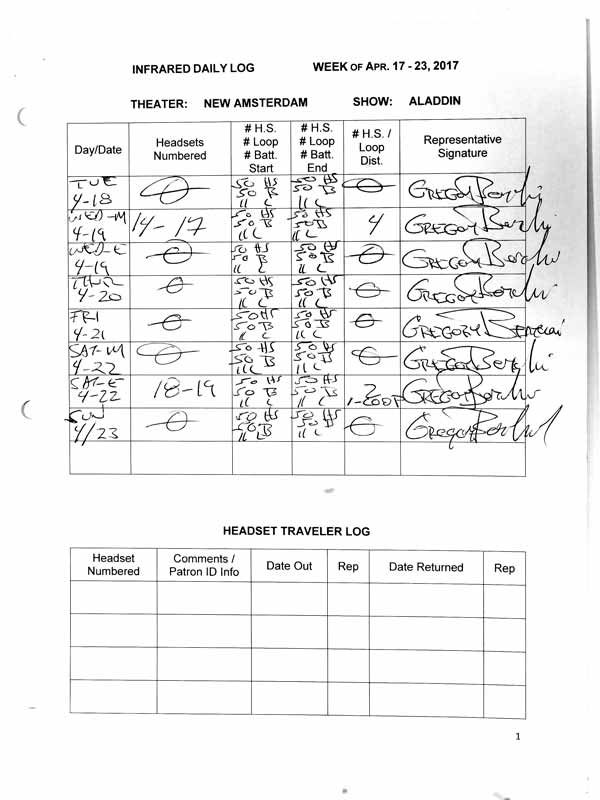 INFRARED DAILY LOG WEEK OF APR. 17 - 23, 2017
THEATER: NEW AMSTERDAM SHOW: ALADDIN
Day/Date
Headsets
Numbered
# H.S.
# Loop
# Batt.
Start
# H.S.
# Loop
# Batt.
End
# H.S. /
Loop
Dist.
Representative
Signature
TUE
4-18
50 HS
50 B
11 L
50 HS
50 B
11 L
GREGORY
WED-M
4-19
14-17
50 HS
50 B
11 L
50 HS
50 B
11 L
4
GREGORY
WED-E
4-19
50 HS
50 B
11 L
50 HS
50 B
11 L
GREGORY
THUR
4-20
50 HS
50 B
11 L
50 HS
50 B
11 L
GREGORY
FRI
4-21
50 HS
50 B
11 L
50 HS
50 B
11 L
GREGORY
SAT-M
4-22
50 HS
50 B
11 L
50 HS
50 B
11 L
GREGORY
SAT-E
4-22
18-19
50 HS
50 B
11 L
50 HS
50 B
11 L
2
1-LOOP
GREGORY
SUN
4/23
50 HS
50 B
11 L
50 HS
50 B
11 L
GREGORY
HEADSET TRAVELER LOG
Headset
Numbered
Comments /
Patron ID Info
Date Out
Rep
Date Returned
Rep
1